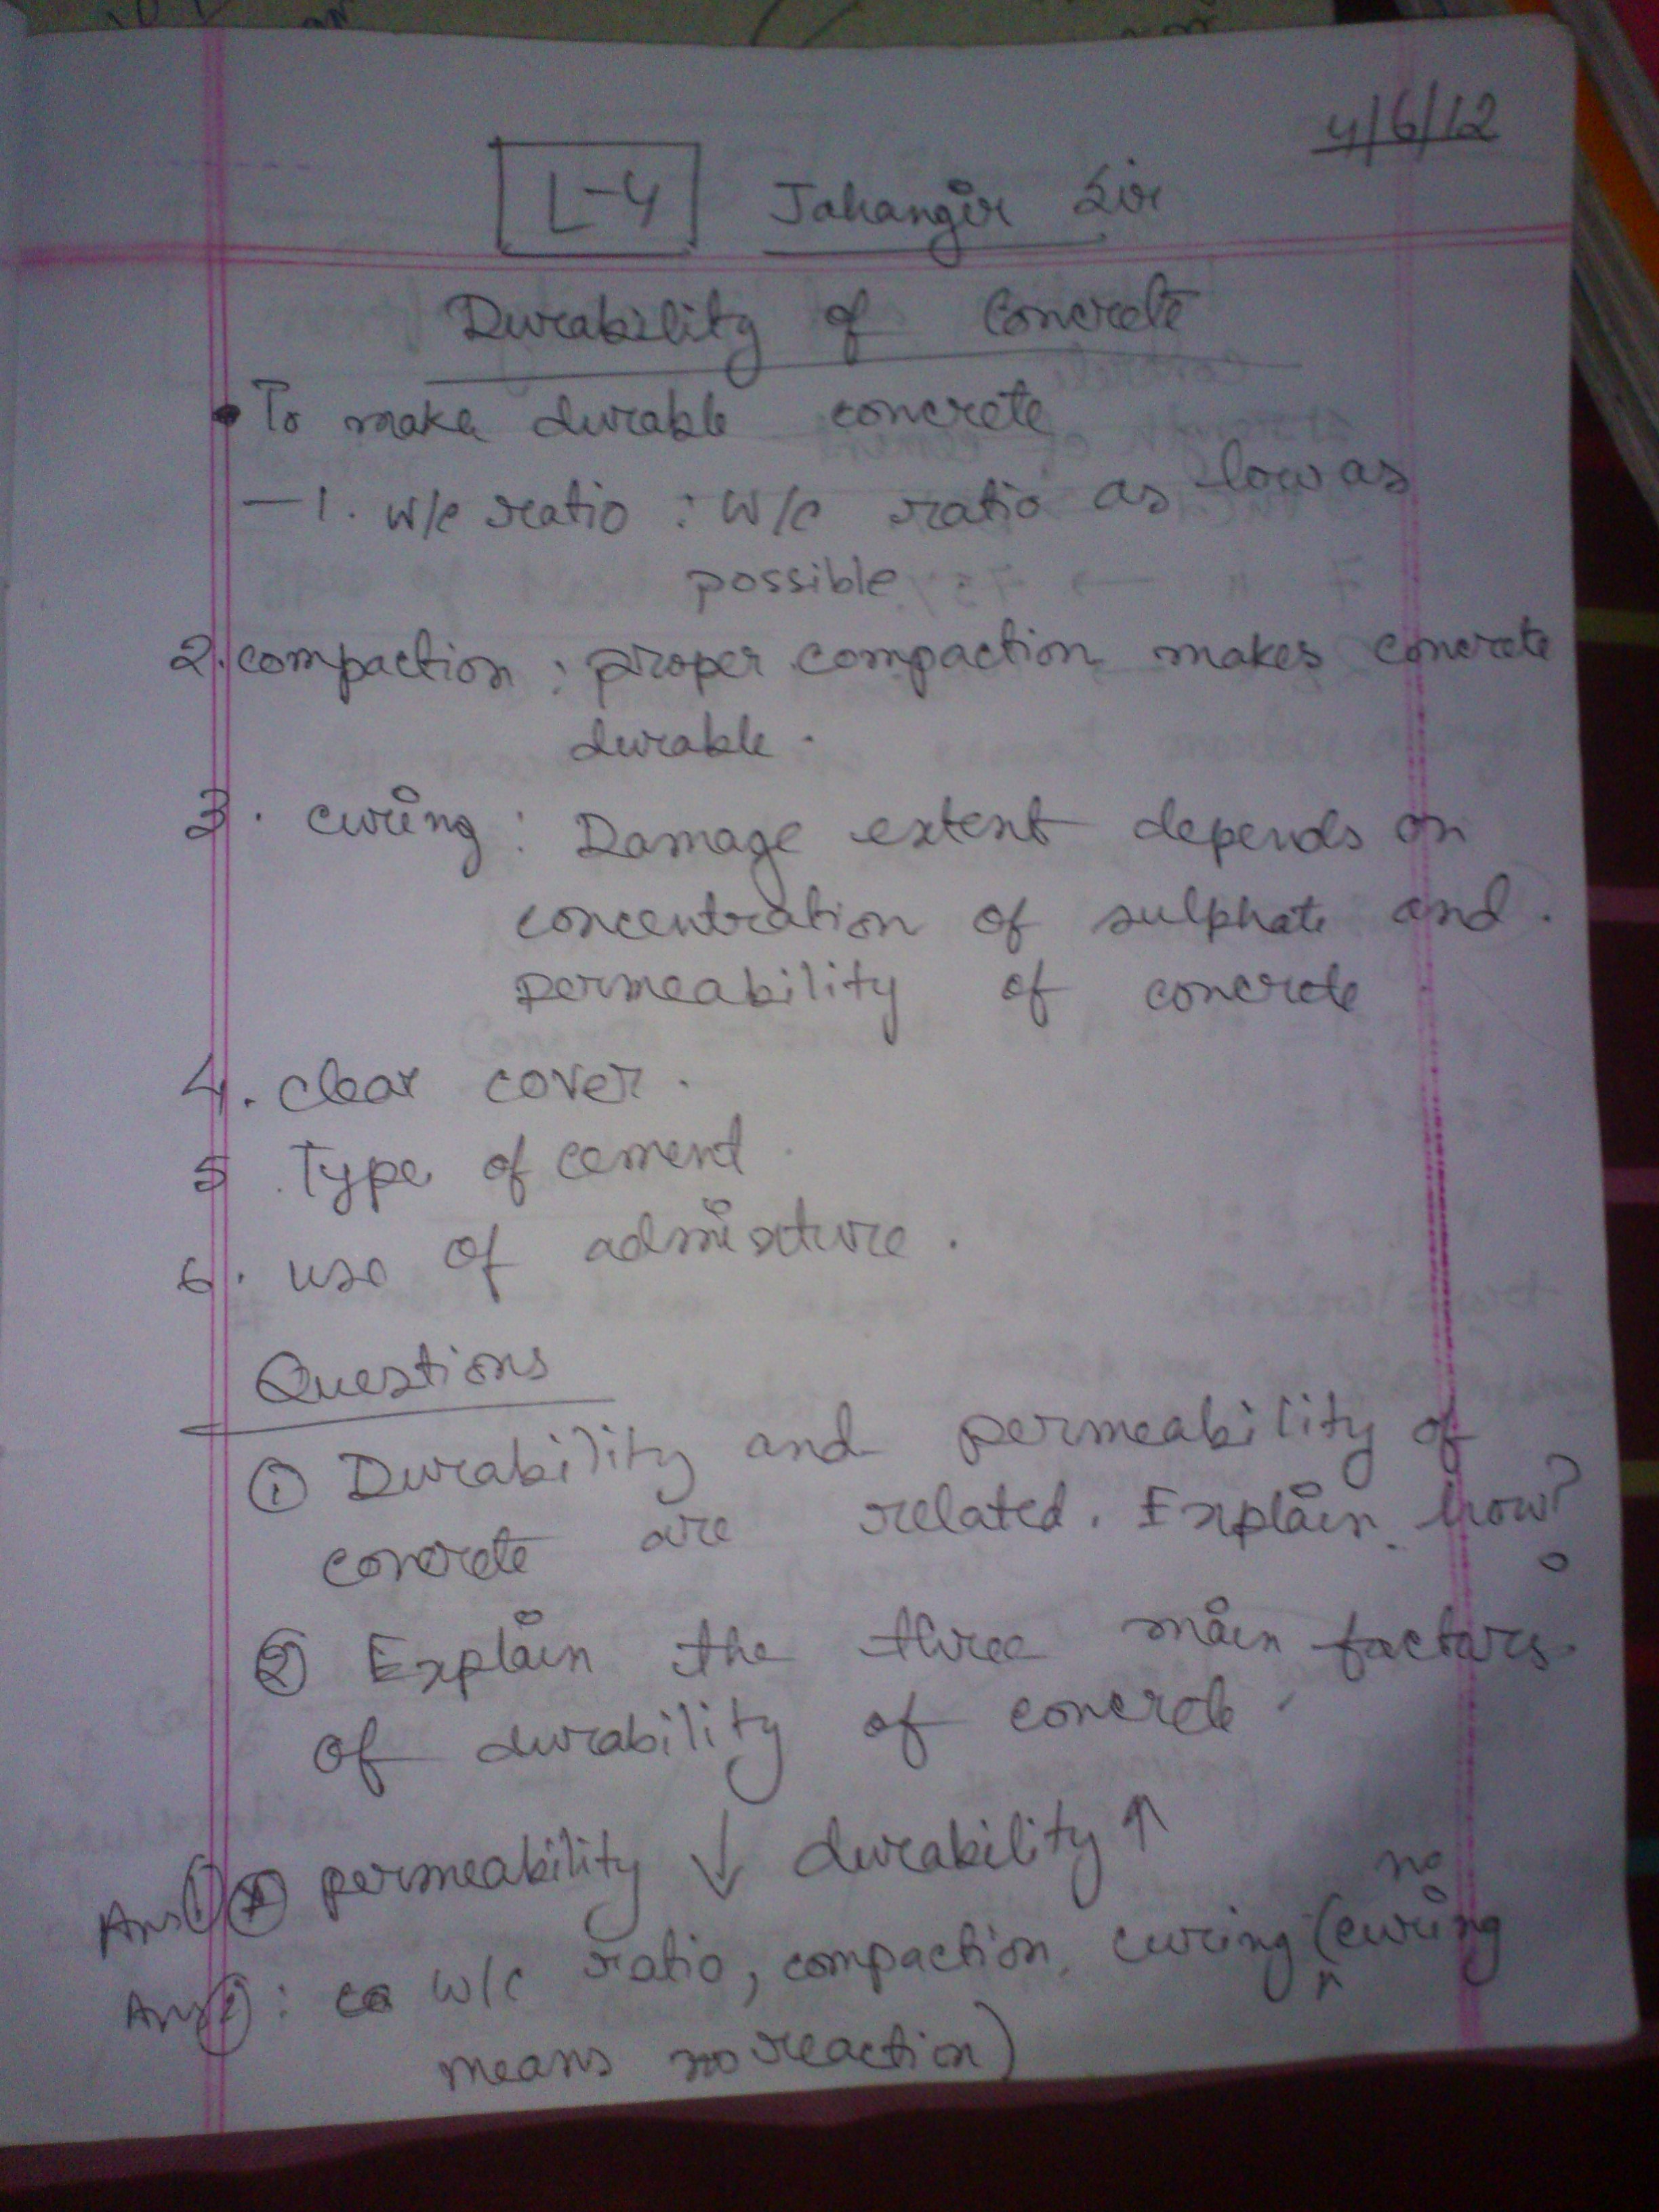 4/6/12
L-4 Jahangir Sir
Durability of Concrete
• To make durable concrete
— 1. w/c ratio : w/c ratio as low as
possible
2. compaction : proper compaction makes concrete
durable.
3. curing : Damage extent depends on
concentration of sulphate and
permeability of concrete
4. clear cover.
5. Type of cement.
6. use of admixture.
Questions
① Durability and permeability of
concrete are related. Explain how?
② Explain the three main factors
of durability of concrete.
Ans ① permeability ↓ durability ↑
Ans ② : w/c ratio, compaction, curing (no curing
means no reaction)